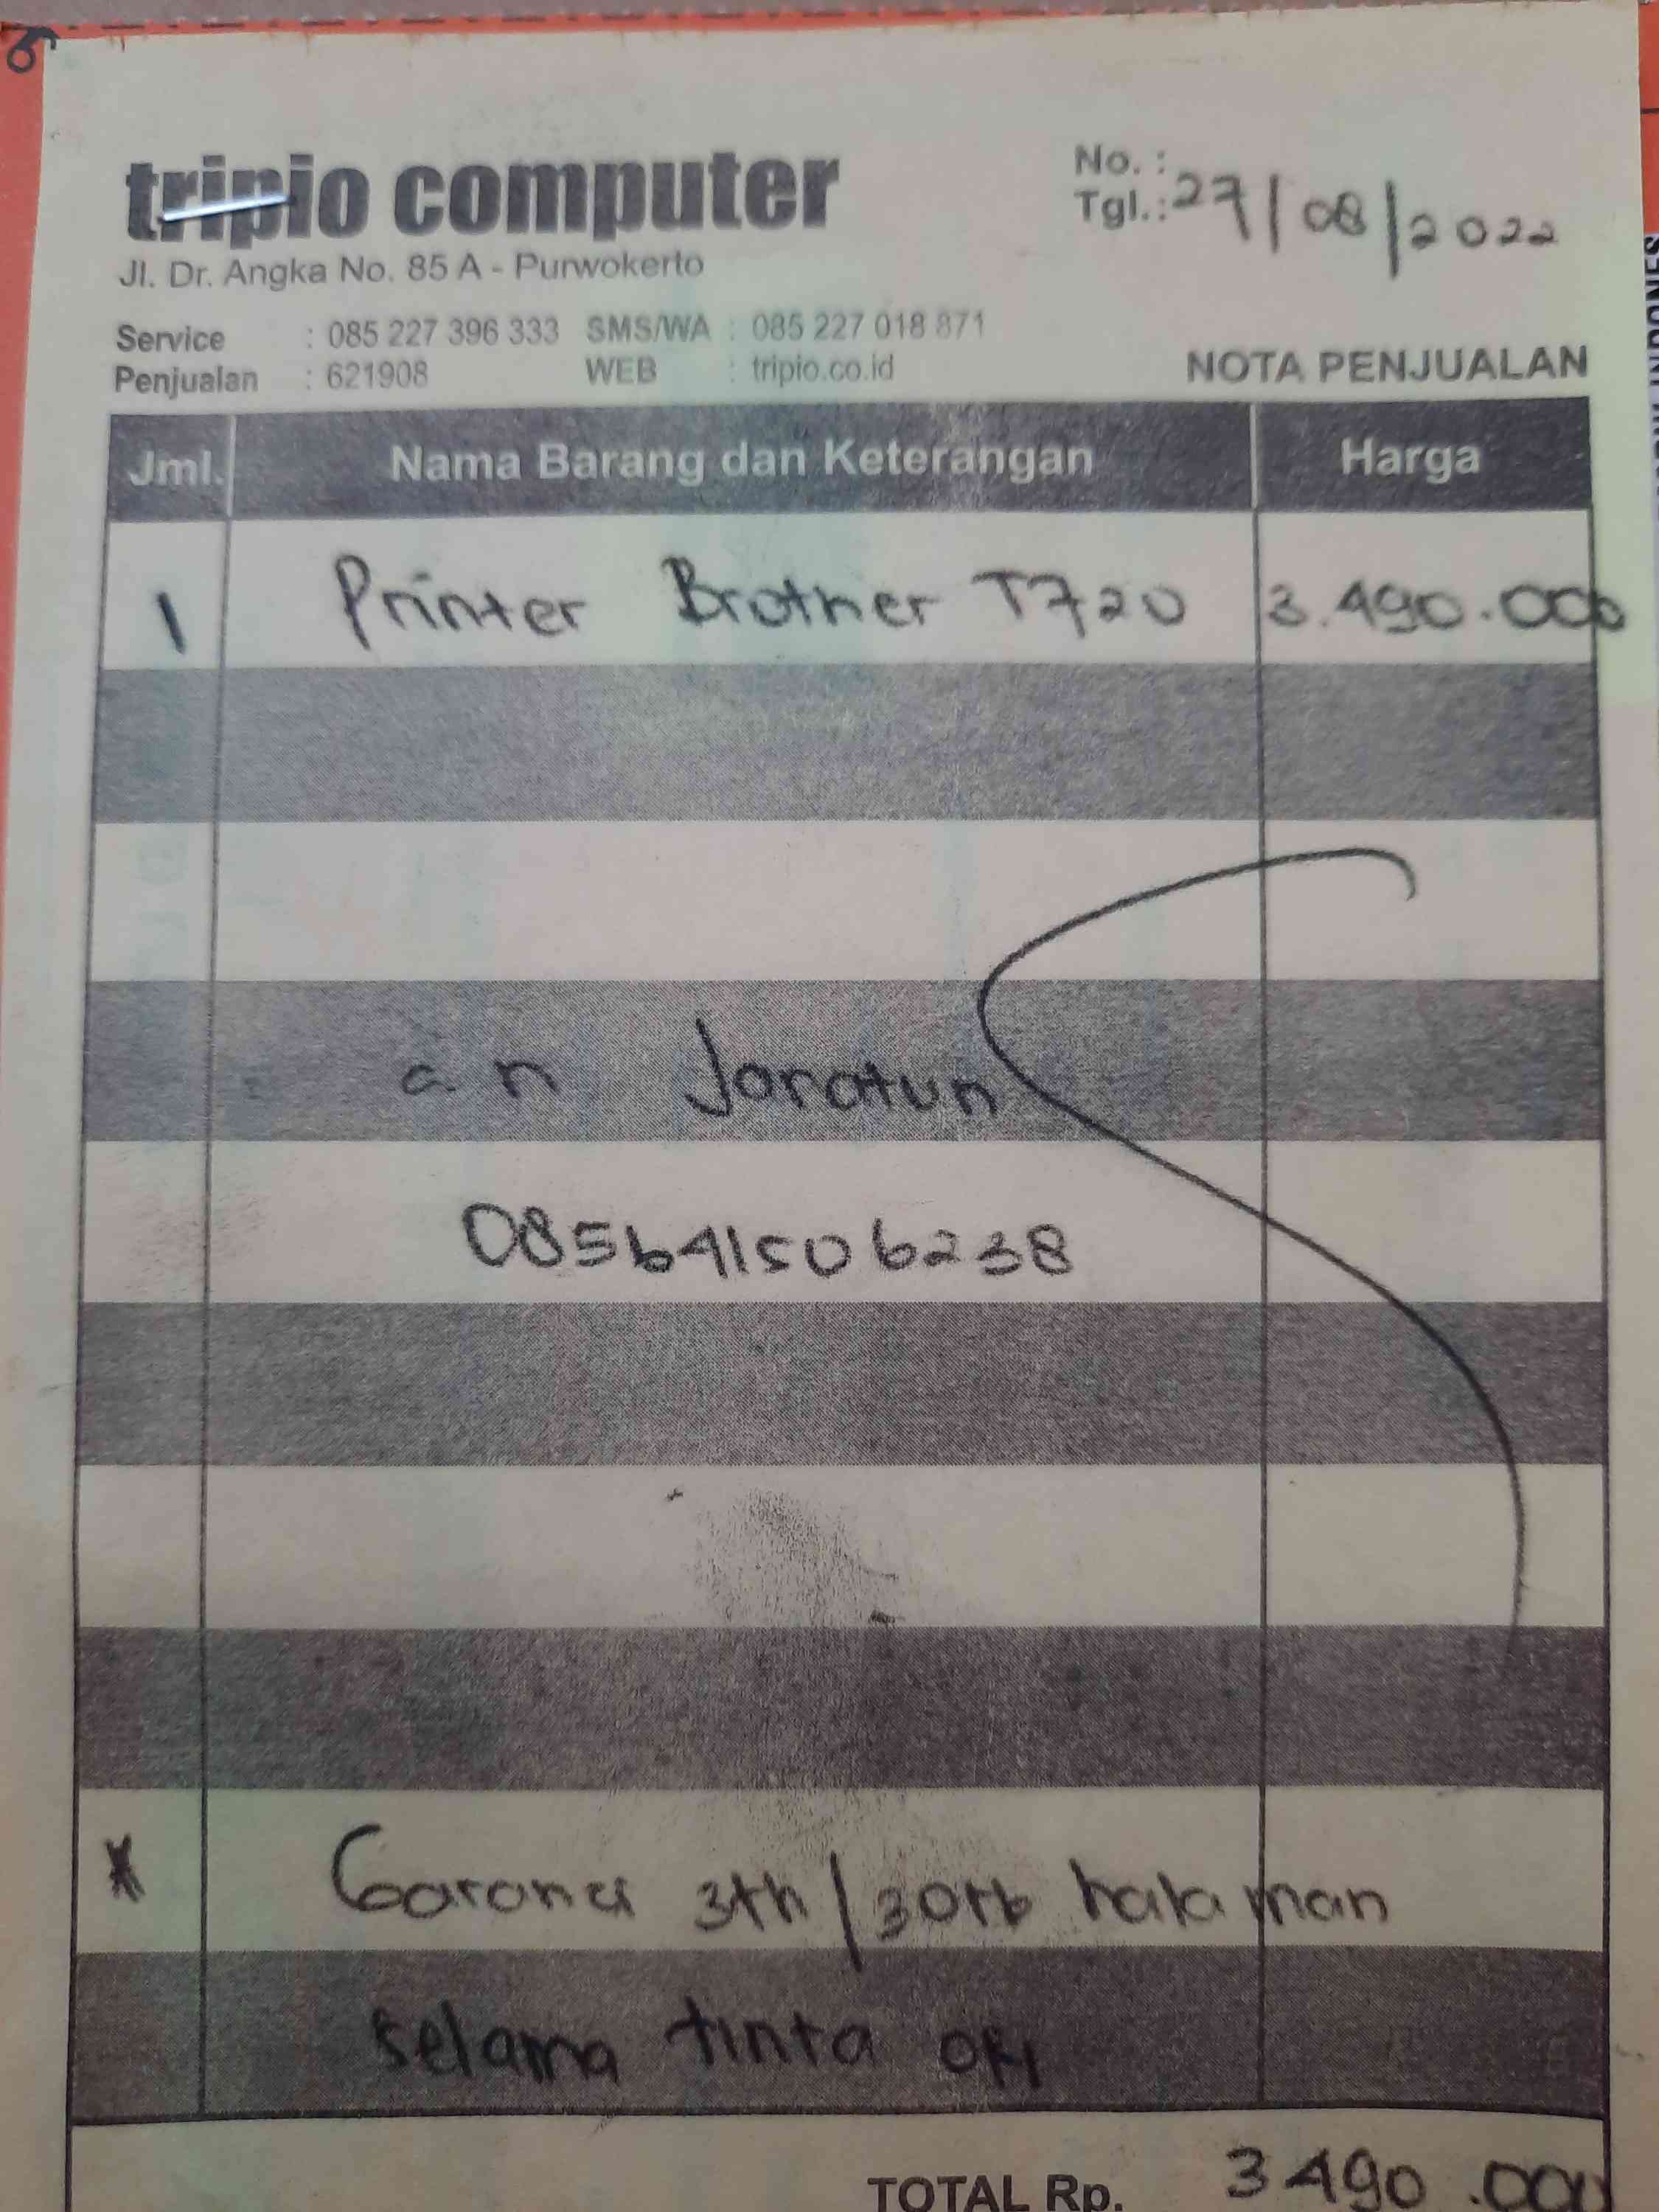 tripio computer
Jl. Dr. Angka No. 85 A - Purwokerto
No. :
Tgl. : 27/08/2022
Service : 085 227 396 333 SMS/WA : 085 227 018 871
Penjualan : 621908 WEB : tripio.co.id
NOTA PENJUALAN
Jml. Nama Barang dan Keterangan Harga
1 Printer Brother T720 3.490.000
a.n Jaratun
085641506238
* Garansi 3th/30rb halaman
selama tinta ori
TOTAL Rp. 3 490.000